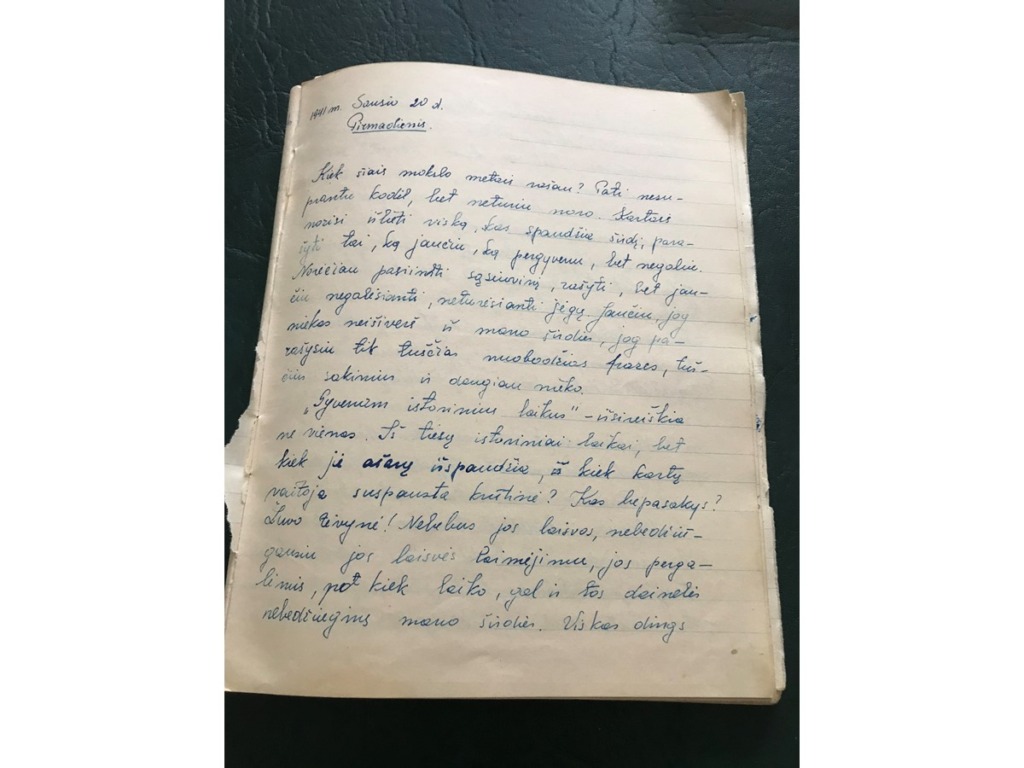 1941 m. Sausio 20 d.
Pirmadienis.
Kiek šiais mokslo metais rašau? Pati nesu-
prantu kodėl, bet neturiu noro. Kartais
norisi išlieti viską, kas spaudžia širdį, para-
šyti tai, ką jaučiu, ką pergyvenu, bet negaliu.
Norėčiau pasiimti sąsiuvinį, rašyti, bet jau-
čiu negalėsianti, neturėsianti jėgų. Jaučiu, jog
niekas neišsiverš iš mano širdies, jog pa-
rašysiu tik tuščias nuobodžias frazes, tuš-
čius sakinius ir daugiau nieko.
„Gyvenam istorinius laikus" – išsireiškia
ne vienas. Iš tiesų istoriniai laikai, bet
kiek jie ašarų išspaudžia, iš kiek kartų
vaitoja suspausta krūtinė? Kas bepasakys?
Žuvo tėvynė! Nebebus jos laisvos, nebedžiū-
gausiu jos laisvės laimėjimu, jos perga-
lėmis, po kiek laiko, gal ir tos dainelės
nebedžiugins mano širdies. Viskas dings